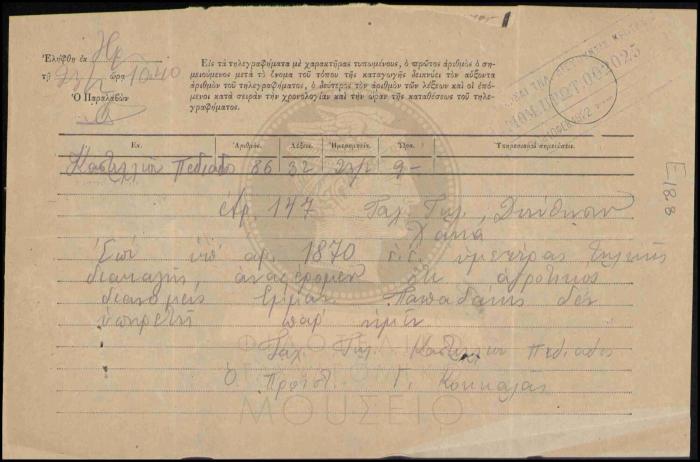 Ἐλήφθη ἐκ Ηρ
τῇ 23/1 ὥρα 10.40
Ὁ Παραλαβὼν
Εἰς τὰ τηλεγραφήματα μὲ χαρακτῆρας τυπωμένους, ὁ πρῶτος ἀριθμὸς ὁ ση-
μειούμενος μετὰ τὸ ὄνομα τοῦ τόπου τῆς καταγωγῆς δεικνύει τὸν αὔξοντα
ἀριθμὸν τοῦ τηλεγραφήματος, ὁ δεύτερος τὸν ἀριθμὸν τῶν λέξεων καὶ οἱ ἑπό-
μενοι κατὰ σειρὰν τὴν χρονολογίαν καὶ τὴν ὥραν τῆς καταθέσεως τοῦ τηλε-
γραφήματος.
002025
Ἐκ. Ἀριθμός. Λέξεις. Ἡμερομηνία. Ὥρα. Ὑπηρεσιακαὶ σημειώσεις.
Καστελλιον Πεδιαδος 86 32 23/1 9-
E188
αρ. 147 Ταχ. Τηλ. Διεύθησιν
Χανια
Επι υπ αρ. 1870 υμετέρας τηλ/κής
διαταγής, αναφέρομεν ότι αγροτικος
διανομεύς Εμμαν. Παπαδακης δεν
υπηρετή παρ' ημίν
Ταχ. Τηλ. Καστελλιον Πεδιαδος
Ο Προϊστ. Γ. Κοκκαλας
ΜΟΥΣΕΙΟ